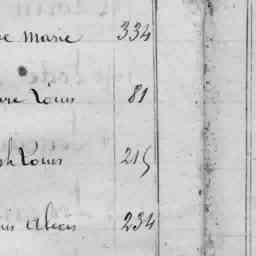 e Marie 334
re Louis 81
ph Louis 215
is Alexis 234